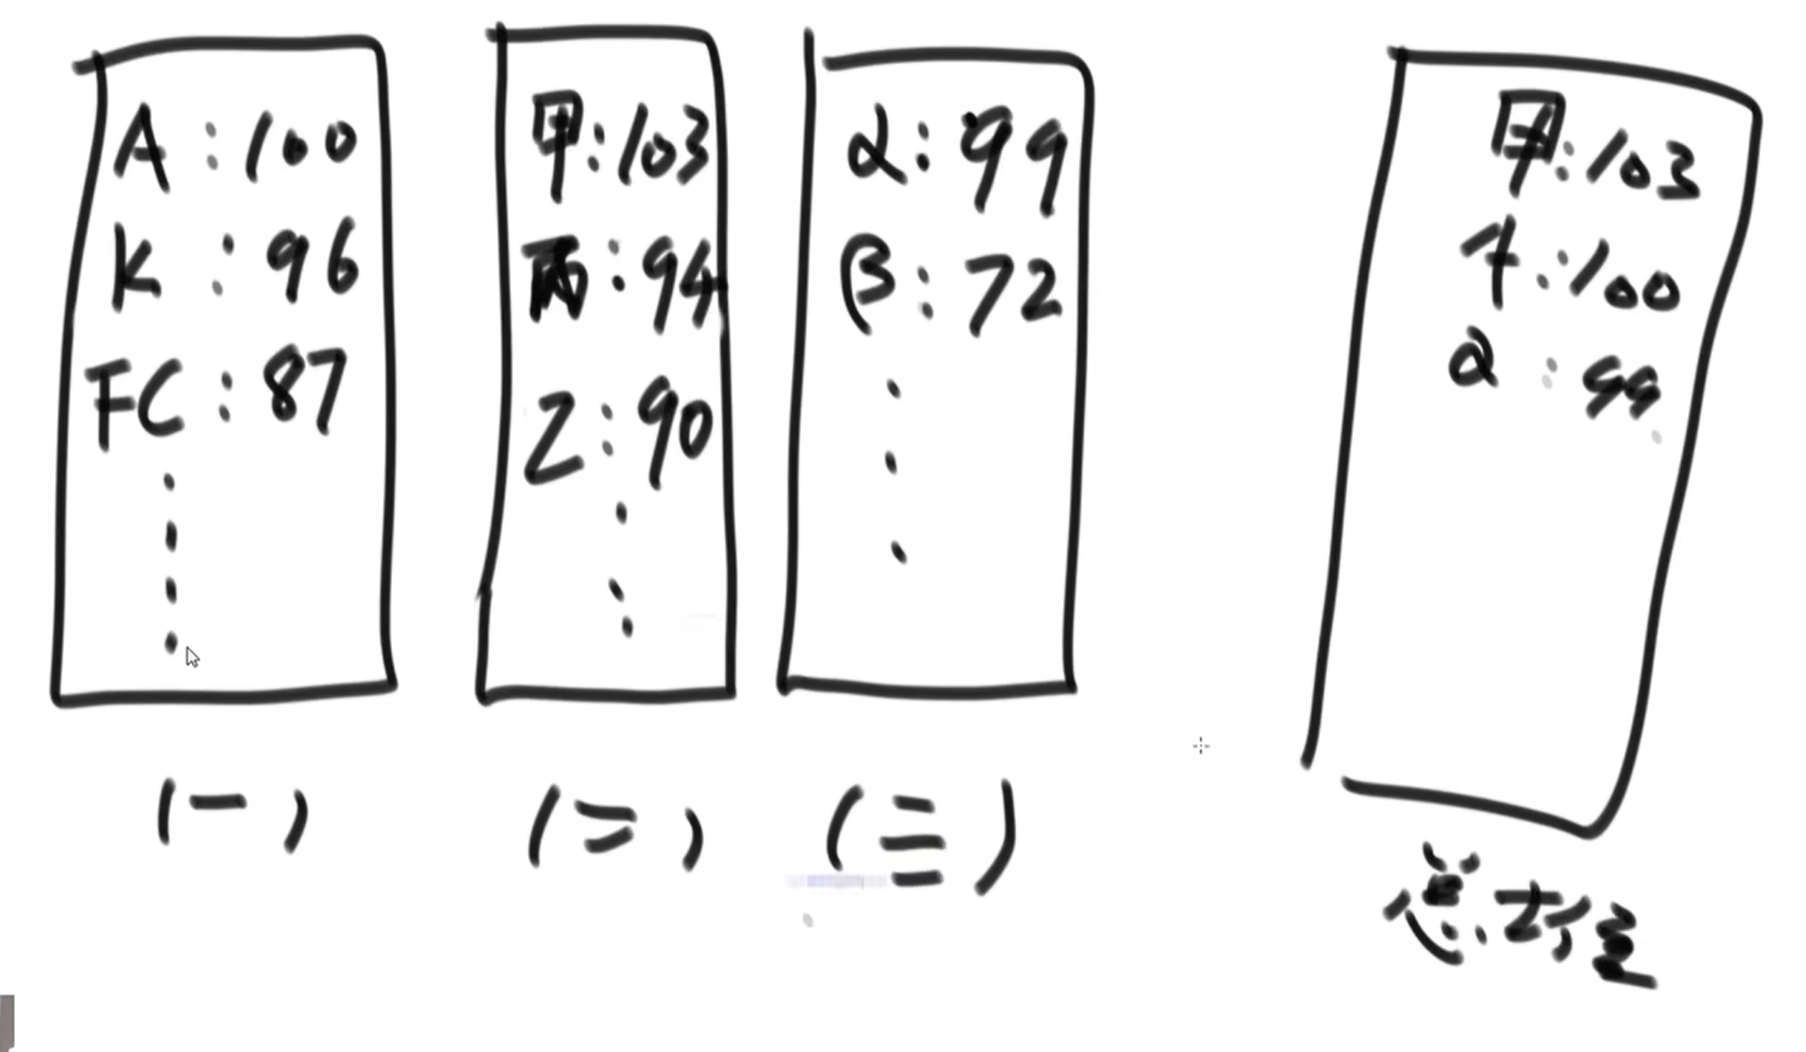 A : 100
K : 96
FC : 87
(一)
甲 : 103
丙 : 94
Z : 90
(二)
α : 99
β : 72
(三)
甲 : 103
A : 100
α : 99
总